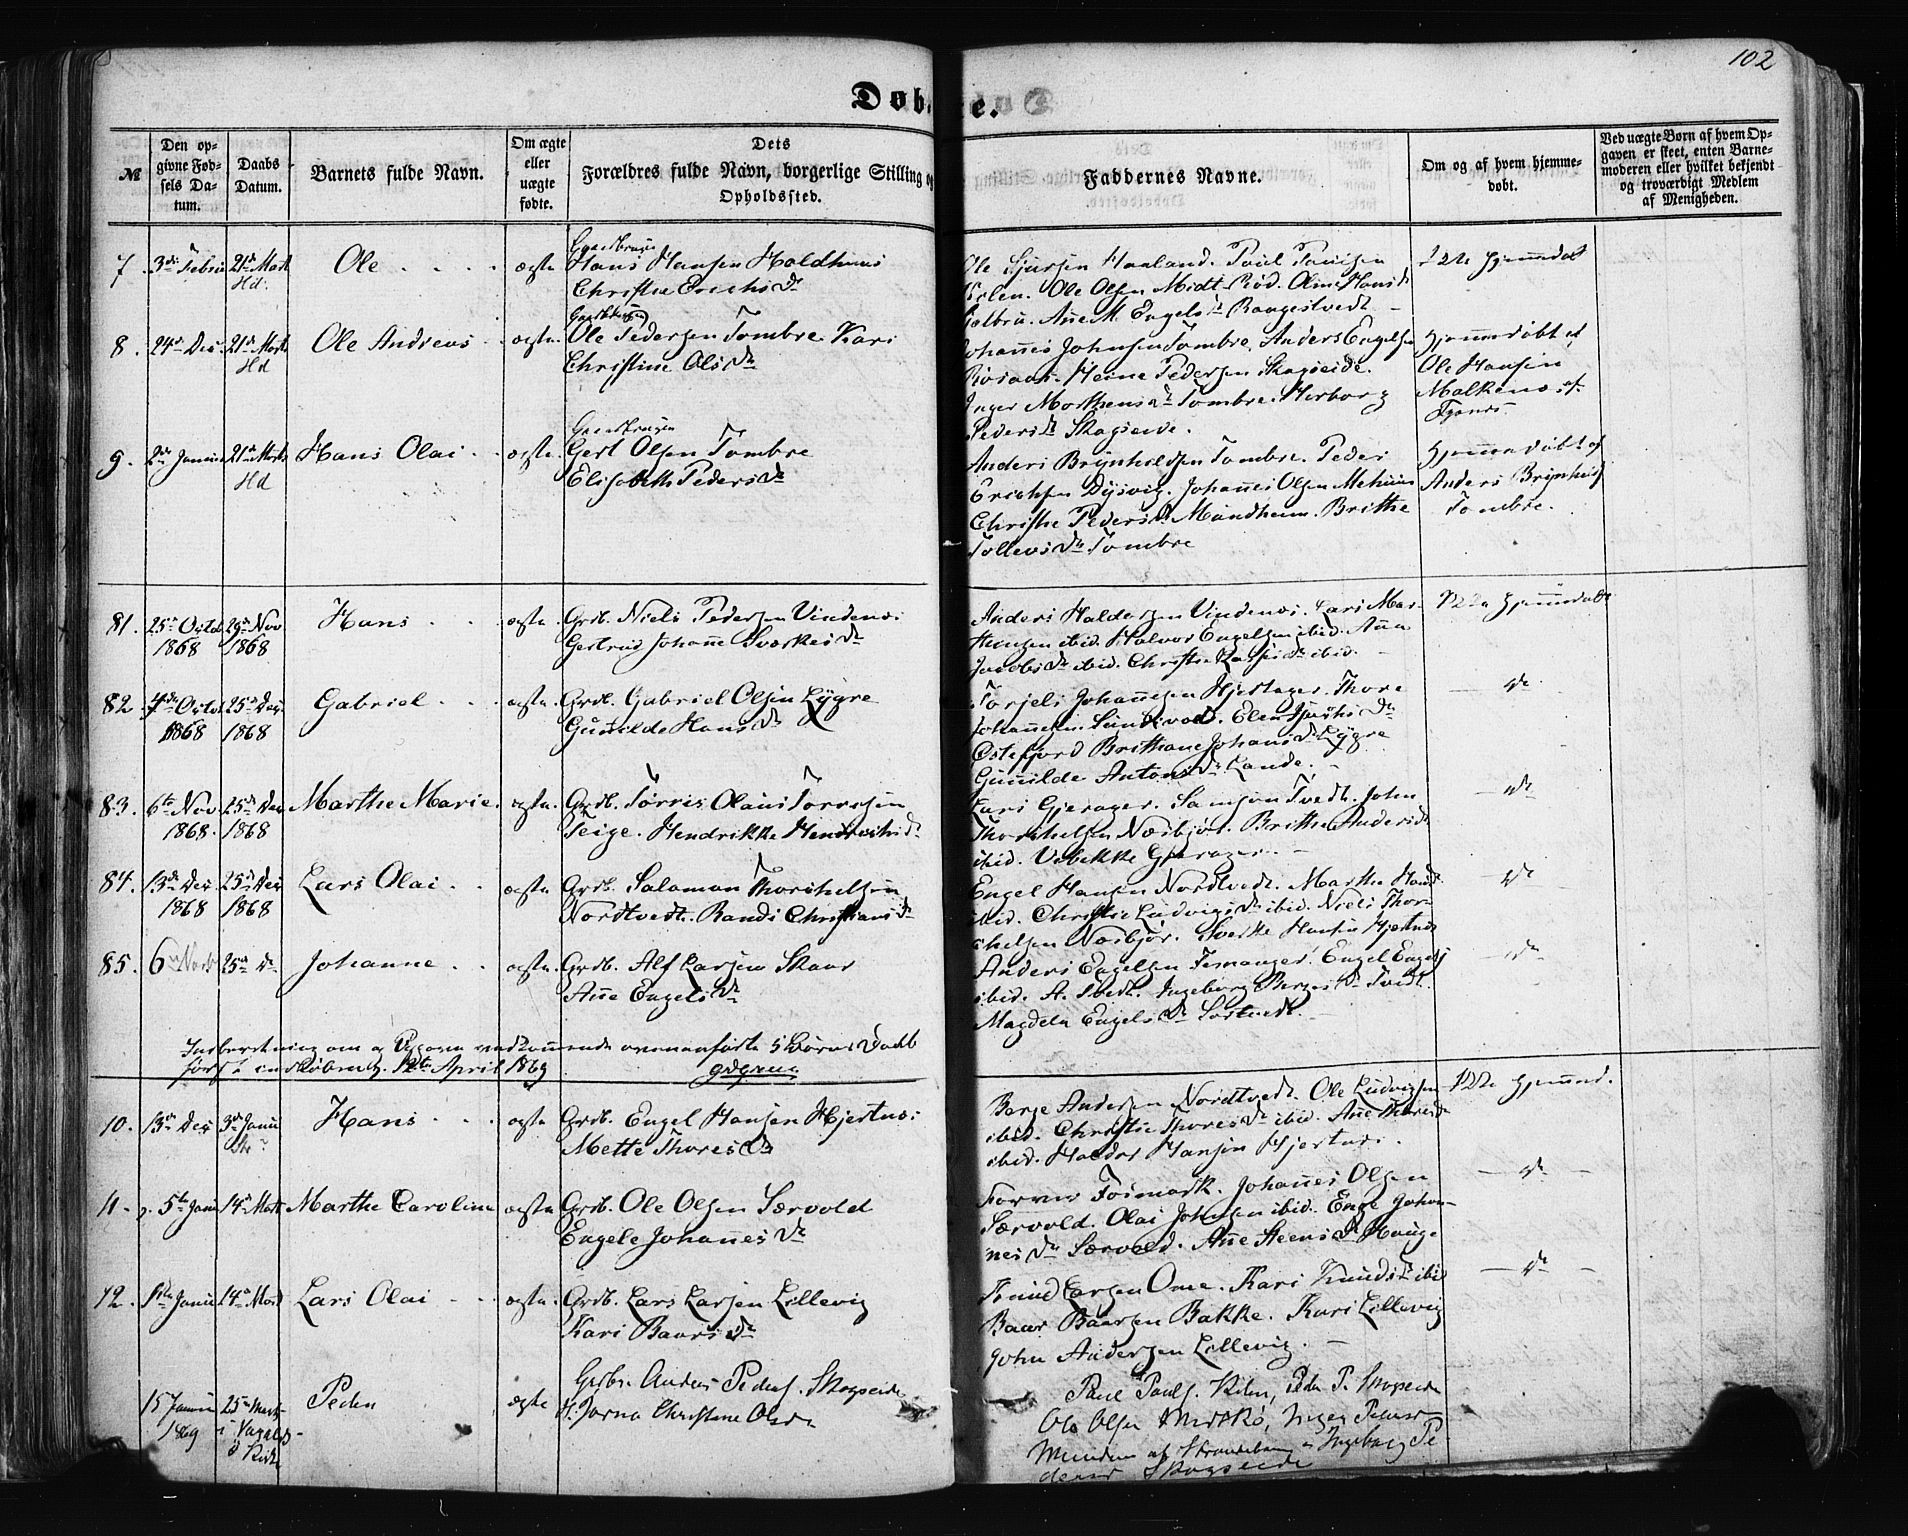 102
Døbte.
№
Den opgivne Fødsels Datum.
Daabs Datum.
Barnets fulde Navn.
Om ægte eller uægte fødte.
Dets Forældres fulde Navn, borgerlige Stilling og Opholdssted.
Faddernes Navne.
Om og af hvem hjemmedøbt.
Ved uægte Børn af hvem Opgaven er skeet, enten Barnemoderen eller hvilket bekjendt og troværdigt Medlem af Menigheden.
7. 3die Febru 21de Marts Hd. Ole ægte
Gaardbruger
Hans Hansen Holdhuus
Christie Erichsdr
Ole Sjursen Haaland. Poul Poulsen
Kilen. Ole Olsen Midt-Rød. Oline Hansdr
Anne M. Engelsdr Raagestvedt
8. 24de Des. 21de Marts Hd Ole Andreas ægte
Gaardbruger
Ole Pedersen Tombre. Kari
Christine Olsdr
Johannes Johnsen Tombre. Anders Engelsen
Heine Pedersen Skogseide.
Inger Morthensdr Tombre. Herborg
Pedersdr Skogseide.
Hjemmedøbt af
Ole Hansen
9. 2den Januar 21de Marts Hd Hans Olai ægte
Gaardbruger
Gert Olsen Tombre
Elisabeth Pedersdr
Anders Brynhildsen Tombre. Peder
Erichsen Dysvig. Johannes Olsen Mehuus
Christie Pedersdr Mundheim. Brithe
Tollevsdr Tombre
Hjemmedøbt af
Anders Brynhilds
Tombre.
81. 25de Octb 1868 29de Nov 1868 Hans ægte
Grdb. Niels Pedersen Vindenes
Gertrud Johanne Sverkesdr
Anders Haldorsen Vindenes. Lars Mar-
thinsen ibid. Halvor Engelsen ibid. Anna
Jacobsdr ibid. Christie Larsdr ibid.
82. 4de Octb 1868 25de Des. 1868 Gabriel ægte
Grdb. Gabriel Olsen Lygre
Gunilde Hansdr
Torjels Johannesen Hjertager. Thore
Johannesen Sundvor. Elen Sjursdr
Østefjord Brithane Johansdr Lygre
Gunilde Antonsdr Lande.
dr
83. 6te Nov 1868. 25de Des 1868 Marthe Marie. ægte
Grdb. Tørris Olaus Tørresen
Teige. Hendrikke Hendriksdr
Lars Gjerager. Samson Tvedt. John
Thorkelsen Næsbjør. Brithe Andersdr
ibid. Vibekke Gjerager.
dr
84. 13de Des 1868 25de Des 1868 Lars Olai ægte
Grdb. Salomon Thorkelsen
Nordtvedt. Randi Christiansdr
Engel Hansen Nordtvedt. Marthe Hansdr
ibid. Christie Ludvigsdr ibid. Niels Thor-
kelsen Næsbjør. Sverke Hansen Hjertnes
dr
85. 6te Novb 25de dr Johanne ægte
Grdb. Alf Larsen Skaar
Anne Engelsdr
Anders Engelsen Femanger. Engel Engels
ibid. A. Tvedt. Ingeborg Børgesdr Tvedt.
Magdela Engelsdr Sørtvedt.
dr
Indberetning om ovenanførte 5 Børns Daab
først indløbne d. 12te April 1869
10. 13de Des 3de Janu Hans ægte
Grdb. Engel Hansen Hjertnes
Mette Thoresdr
Børge Andersen Nordtvedt. Ole Ludvigsen
ibid. Christie Thoresdr ibid. Anne Thoresdr
ibid. Haldor Hansen Hjertnes.
11. 5te Janu 14de Marts Marthe Caroline ægte
Grdb. Ole Olsen Særvold
Engele Johannesdr
Johannes Olsen
Særvold. Olai Johnsen ibid. Enge Johan-
nesdr Særvold. Anne Steensdr Hauge
dr
12. 11te Janu 14de Marts Lars Olai ægte
Grdb. Lars Larsen Lillevig
Kari Baarsdr
Knud Larsen Ome. Kari Knudsdr ibid
Baar Baarsen Bakke. Kari Lillevig
John Andersen Lillevig.
dr
15 Januar 1869 25de Marts i Vaags Kirke Peder ægte
Grdbr. Anders Peders. Skogseide
Christine Olsdr
Paul Pauls. Kilen, Peder P. Skogseide
Ole Olsen Midtrø, Inger Pedersd
af Strandebarm, Ingeborg Pe-
dersd Skogseide